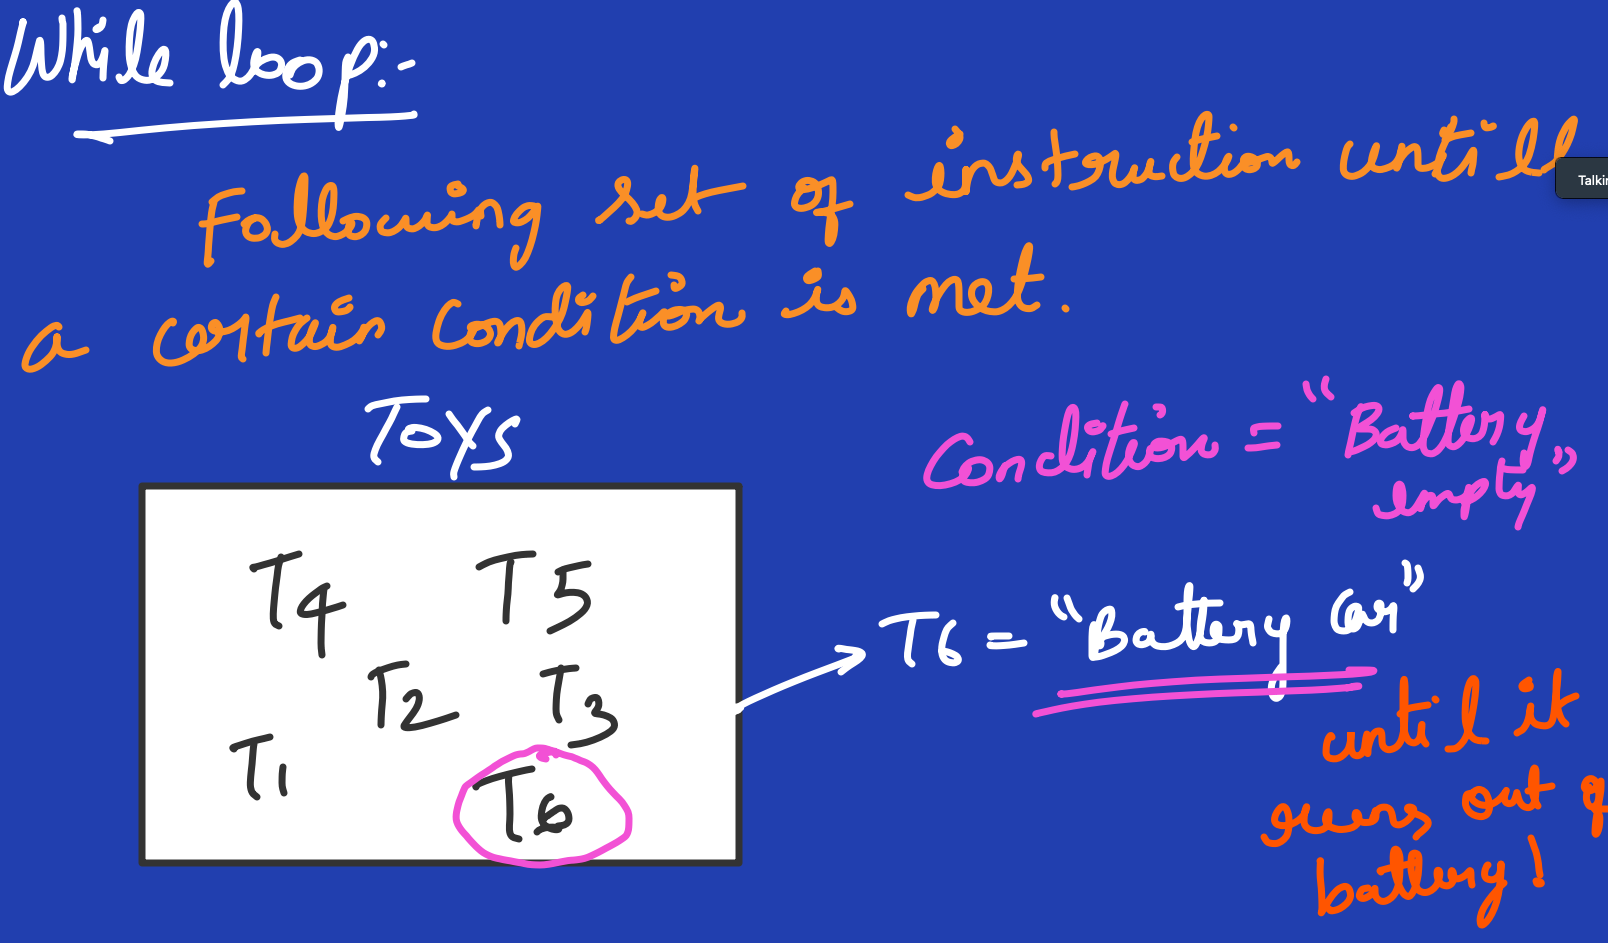 While loop:-
Following set of instruction untill
a certain condition is met.
Toys
Condition = "Battery
empty"
T4 T5
T6 = "Battery Car"
T2 T3
until it
T1
T6
runs out of
battery!
Talkin